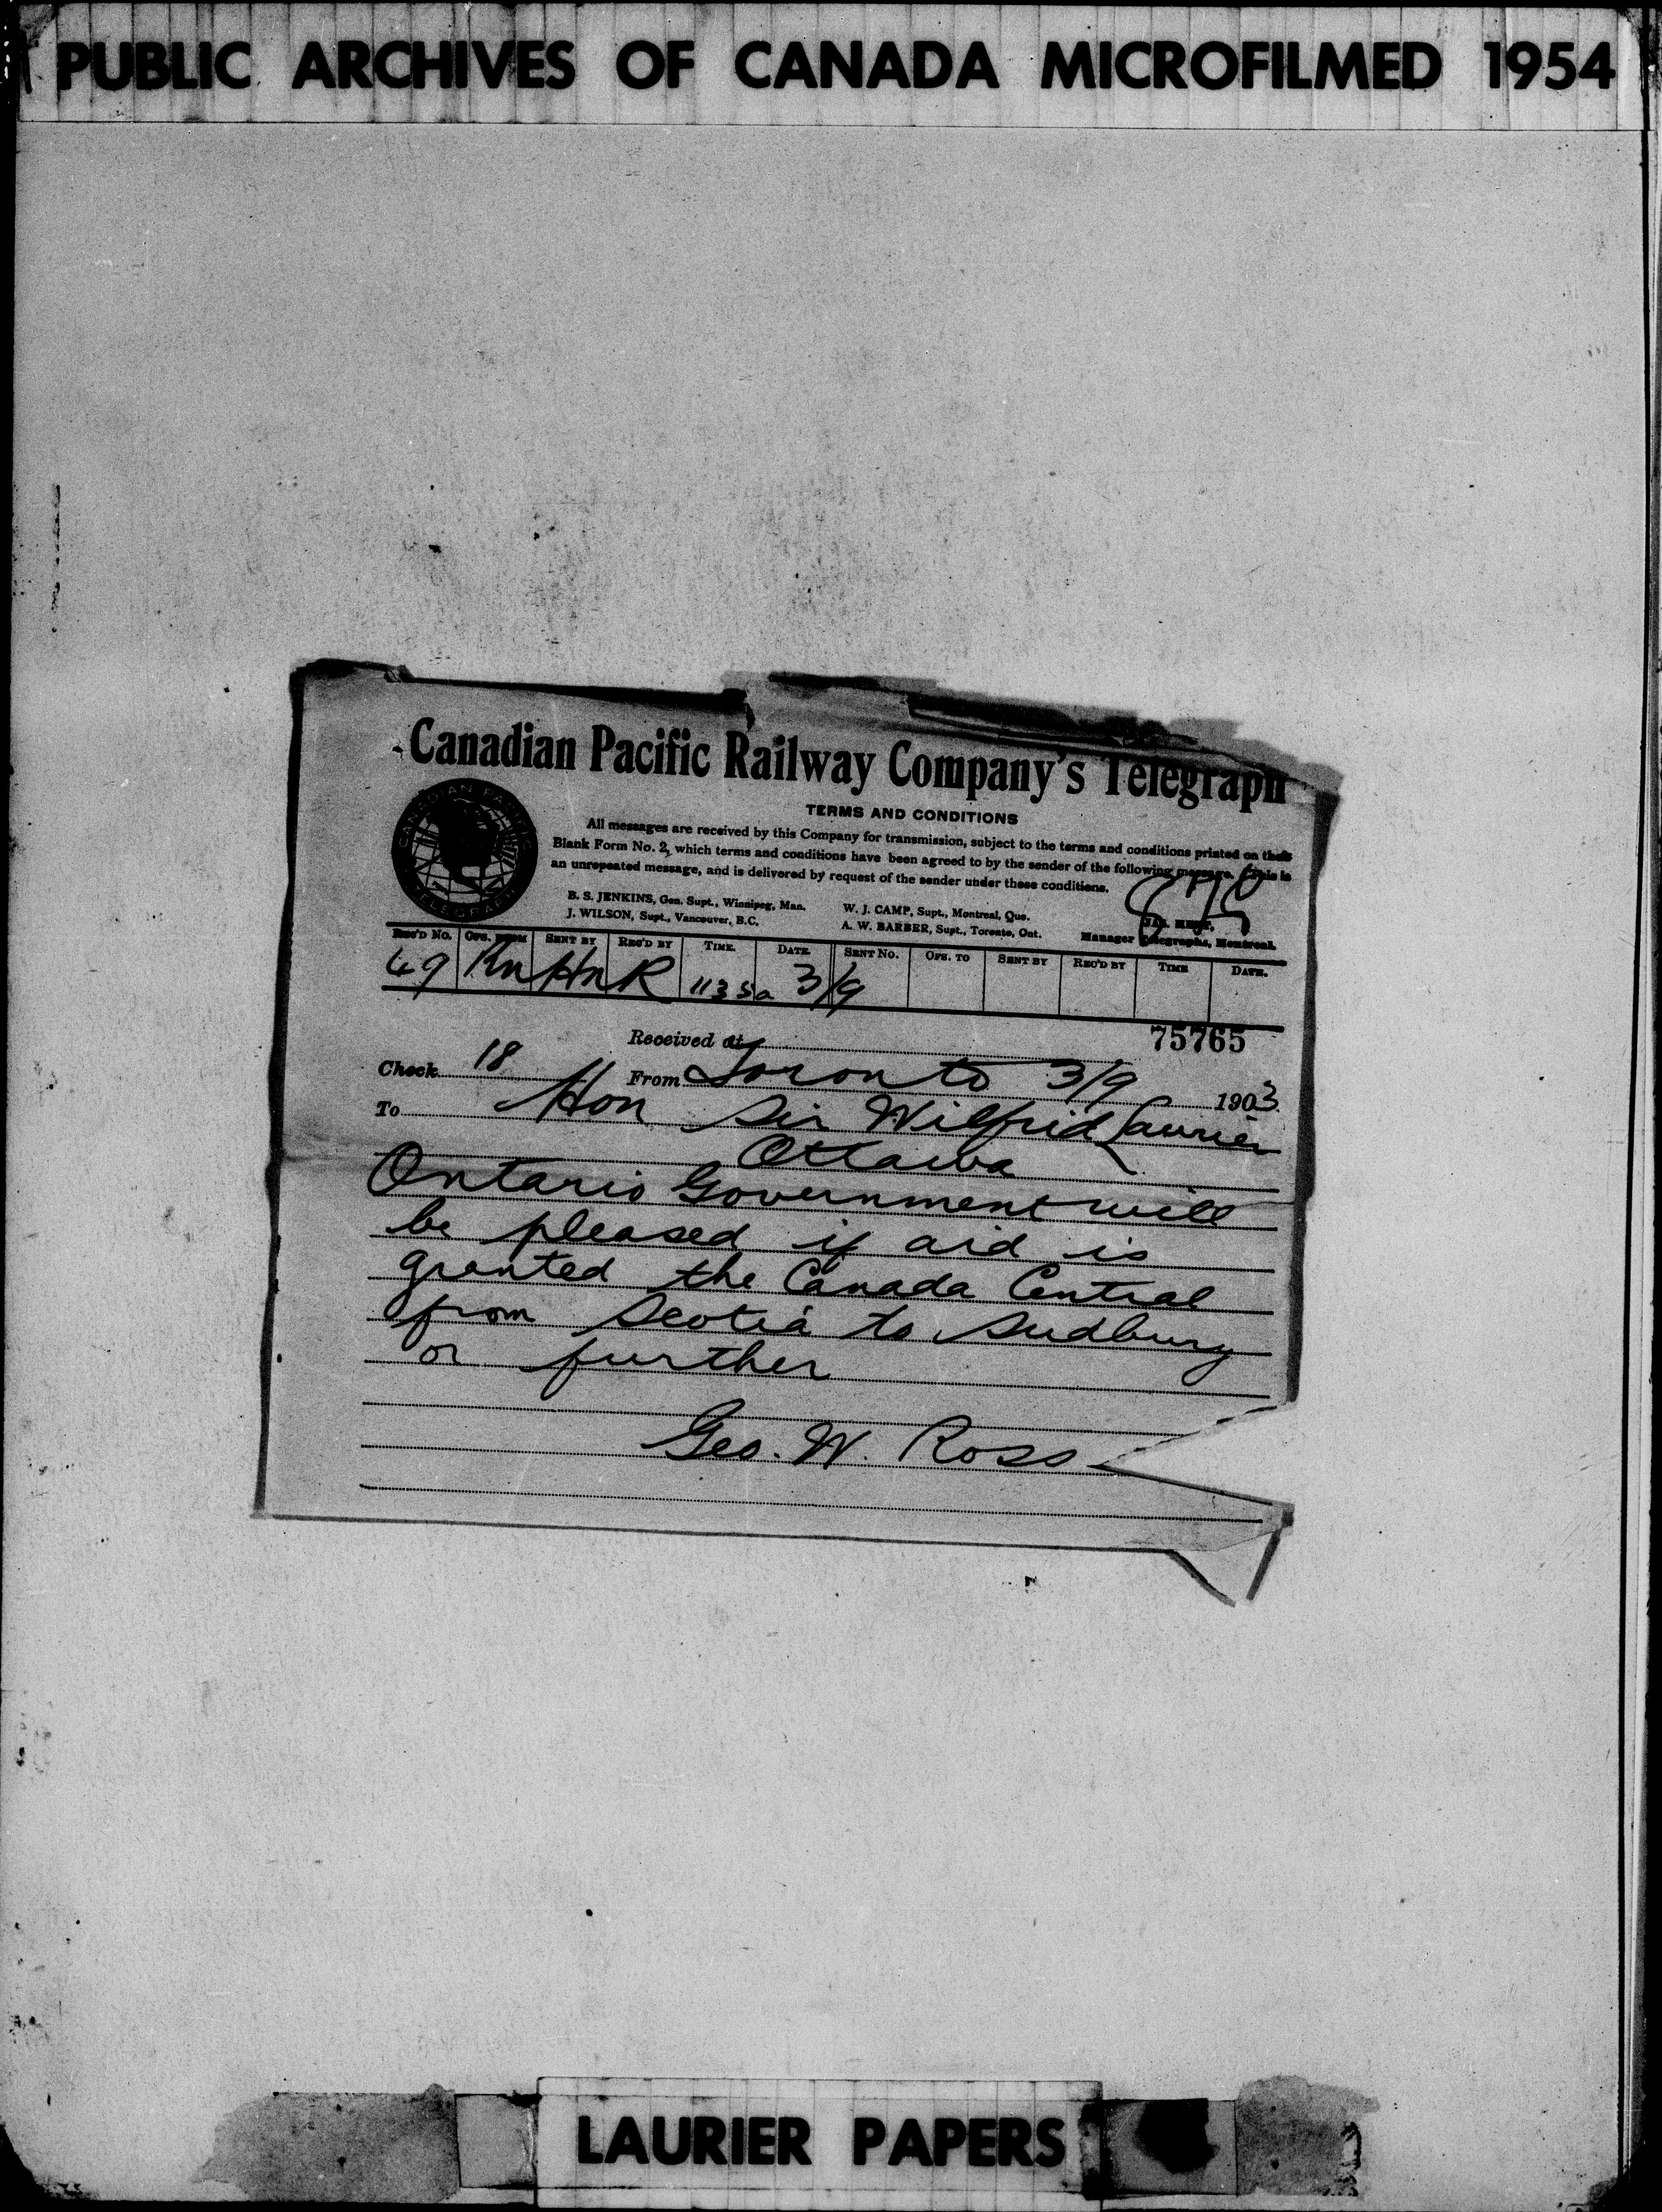 PUBLIC ARCHIVES OF CANADA MICROFILMED 1954
Canadian Pacific Railway Company's Telegraph
CANADIAN PACIFIC
TELEGRAPH
TERMS AND CONDITIONS
All messages are received by this Company for transmission, subject to the terms and conditions printed on their
Blank Form No. 2, which terms and conditions have been agreed to by the sender of the following message. This is
an unrepeated message, and is delivered by request of the sender under these conditions.
B. S. JENKINS, Gen. Supt., Winnipeg, Man.
J. WILSON, Supt., Vancouver, B.C.
W. J. CAMP, Supt., Montreal, Que.
A. W. BARBER, Supt., Toronto, Ont.
Manager Telegraphs, Montreal.
REC'D No. OFS. FROM SENT BY REC'D BY TIME. DATE. SENT No. OFS. TO SENT BY REC'D BY TIME DATE.
69 1135a 3/9
75765
Received at
Check 18 From Toronto 3/9 1903
To Hon Sir Wilfrid Laurier
Ottawa
Ontario Government will
be pleased if aid is
granted the Canada Central
from Scotia to Sudbury
or further
Geo. W. Ross
LAURIER PAPERS